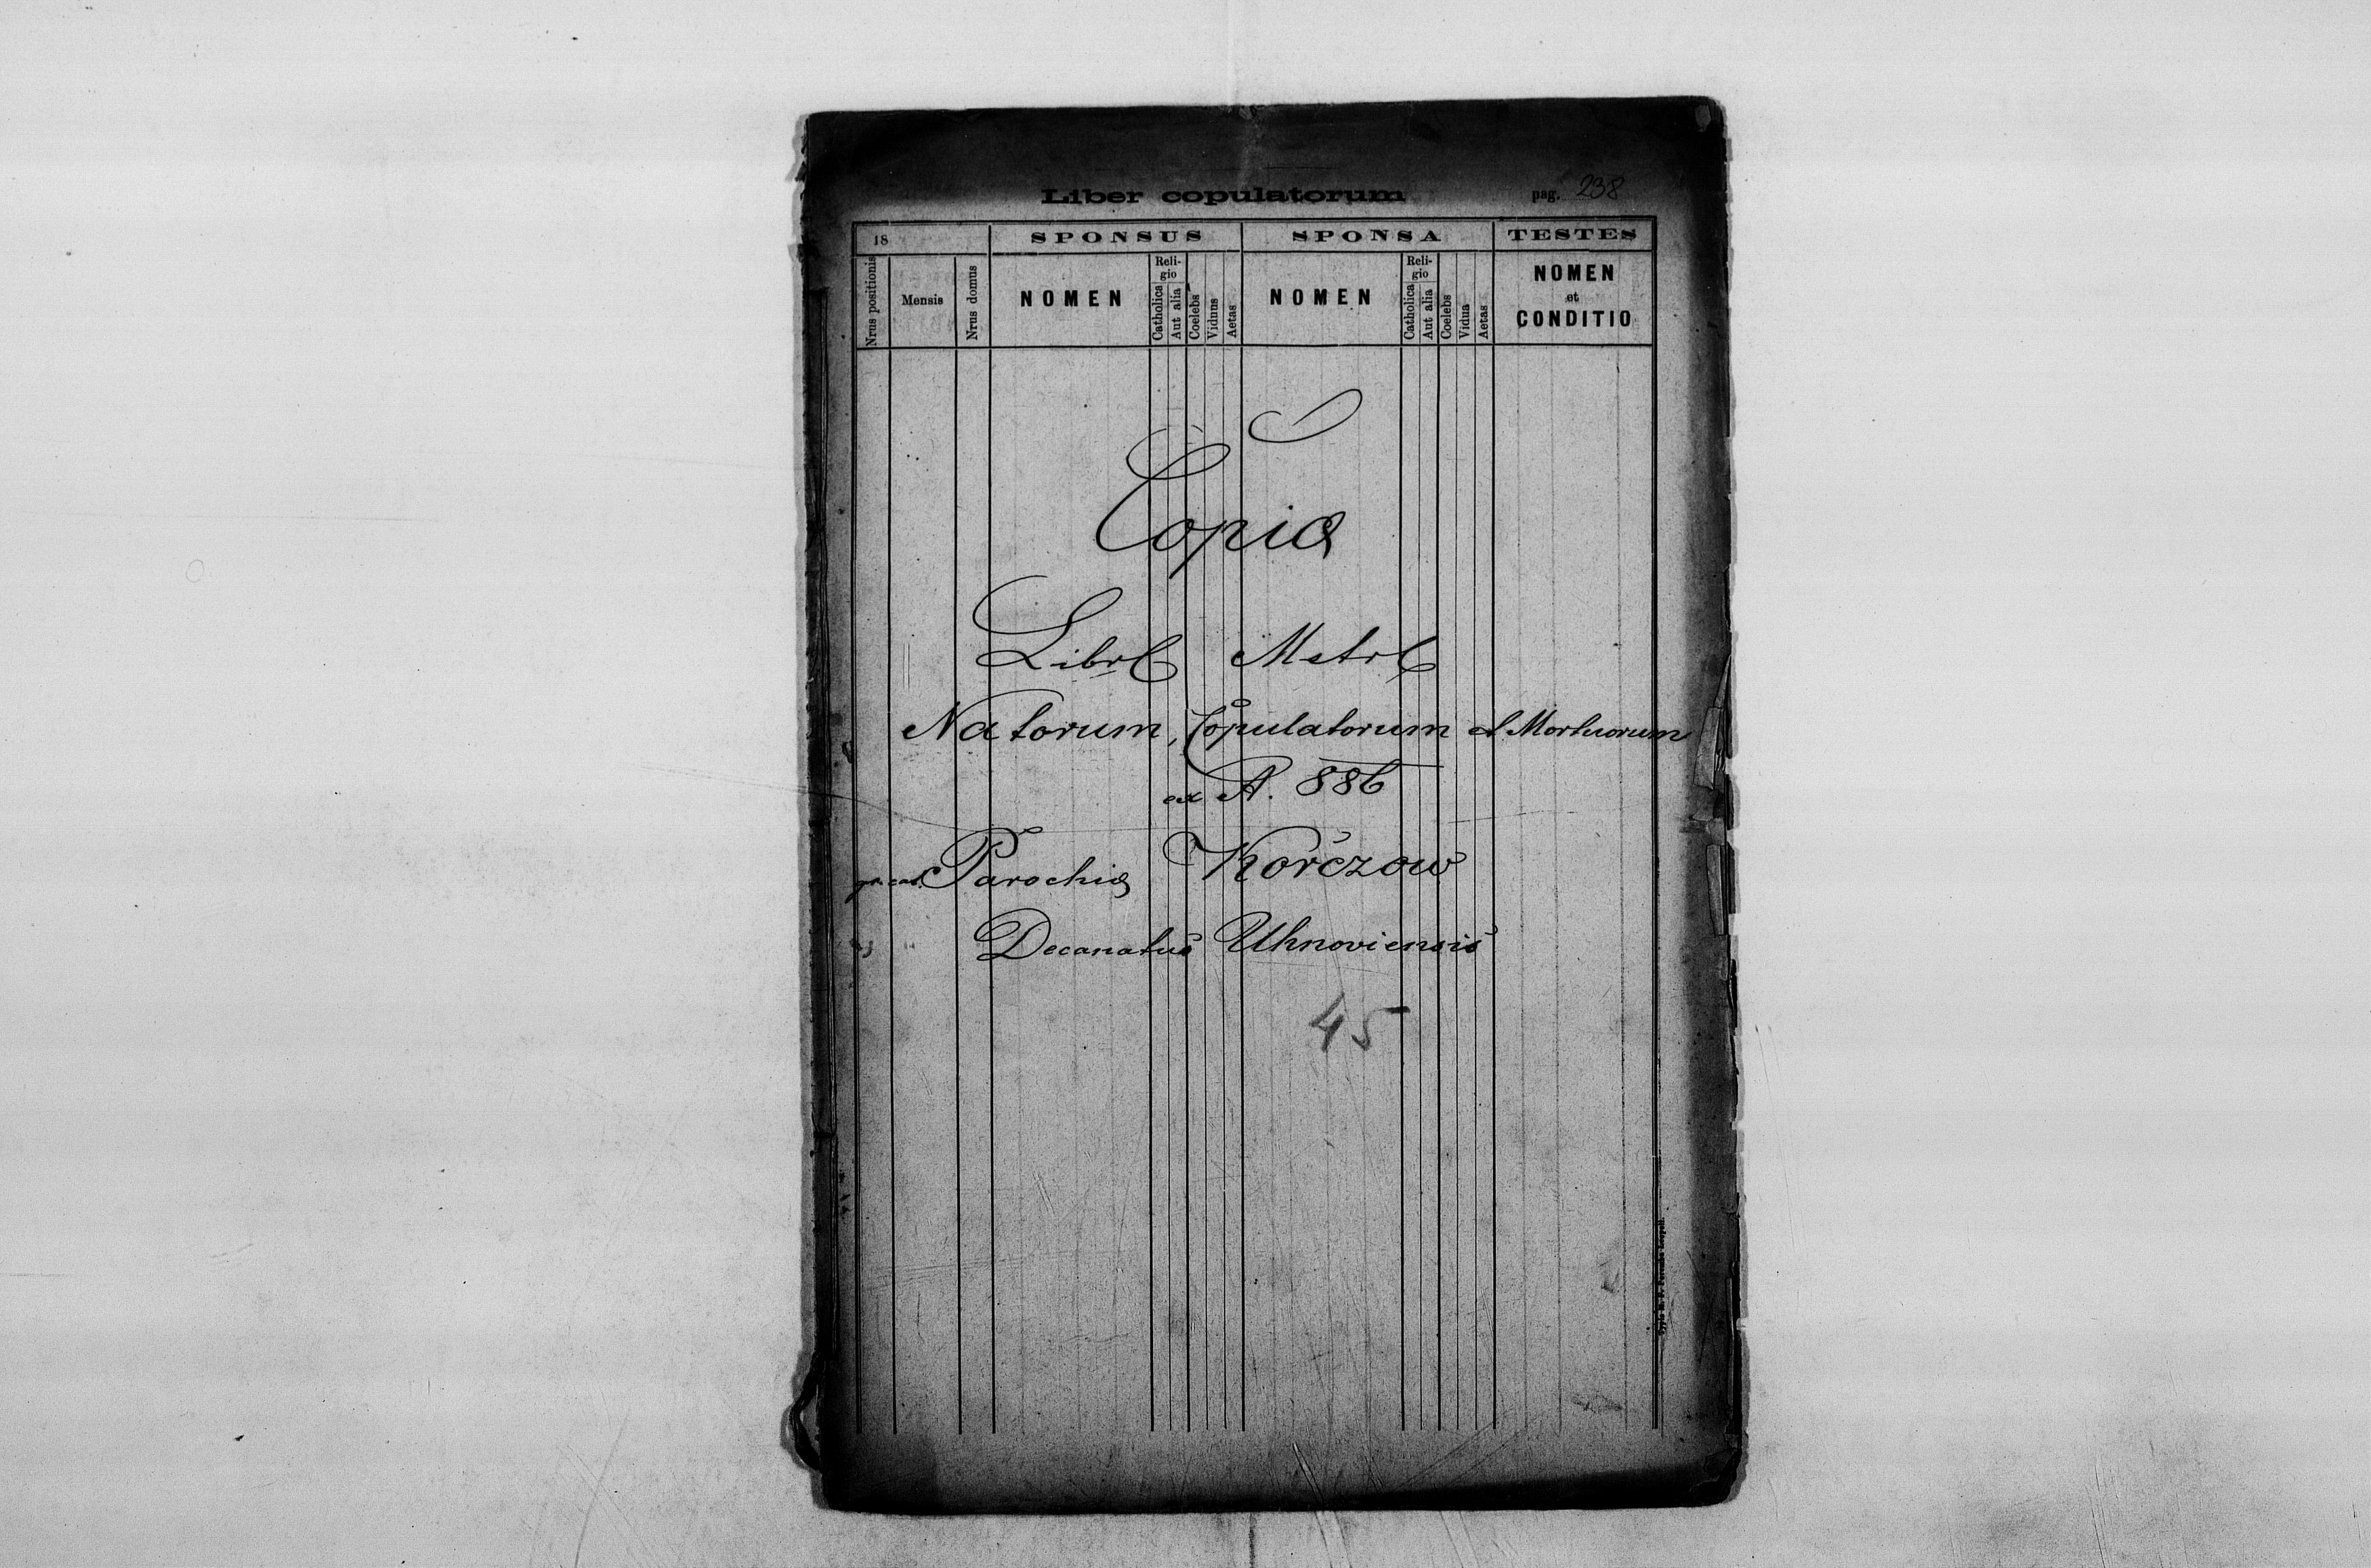 Liber copulatorum pag. 238
18 SPONSUS SPONSA TESTES
Nrus positionis Mensis Nrus domus NOMEN Religio Catholica Aut alia Coelebs Viduus Aetas NOMEN Religio Catholica Aut alia Coelebs Vidua Aetas NOMEN et CONDITIO
Copia
Libr Metr
Natorum, Copulatorum et Mortuorum
ex A. 886
gr. cat. Parochia Korczow
Decanatus Uhnoviensis
45